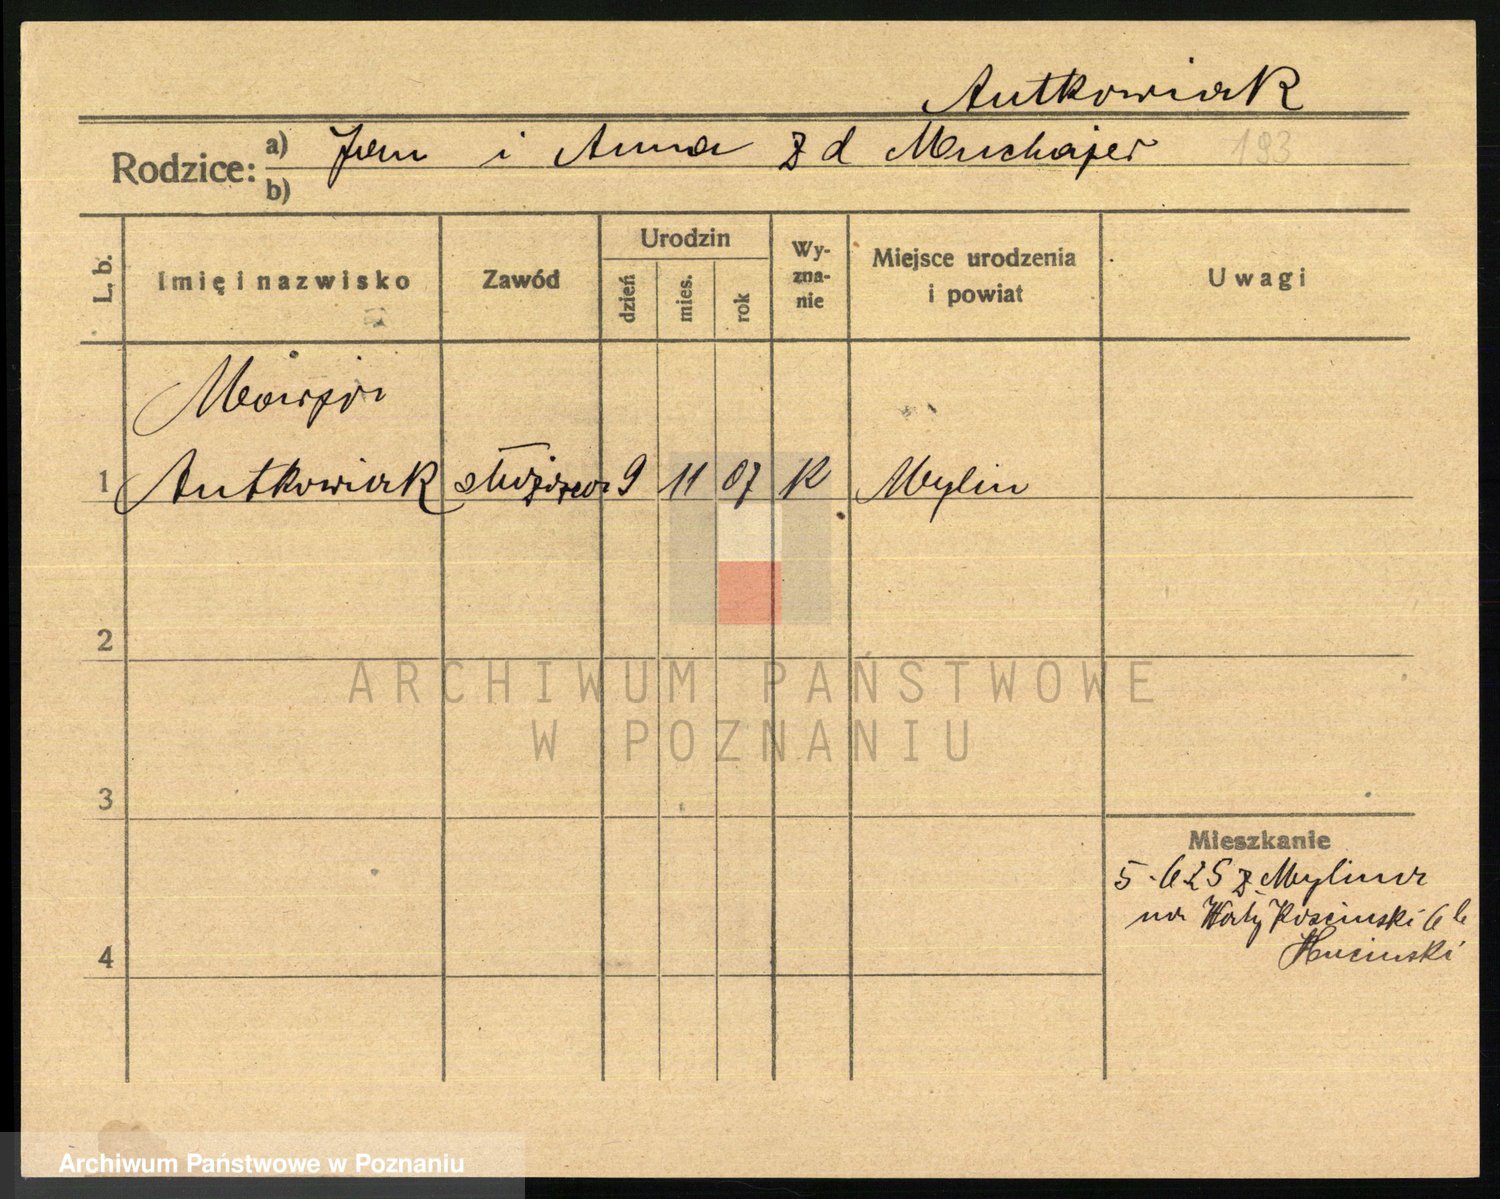 Antkowiak
Rodzice: a) Jan i Anna z d Muchajer 193
b)
L. b. Imię i nazwisko Zawód Urodzin dzień mies. rok Wyznanie Miejsce urodzenia i powiat Uwagi
Marja
1 Antkowiak służąca 9 11 07 K Mylin
2
ARCHIWUM PAŃSTWOWE
W POZNANIU
3
Mieszkanie
5.6 25 z Mylina
na Wały Kościuski 6
4
Archiwum Państwowe w Poznaniu